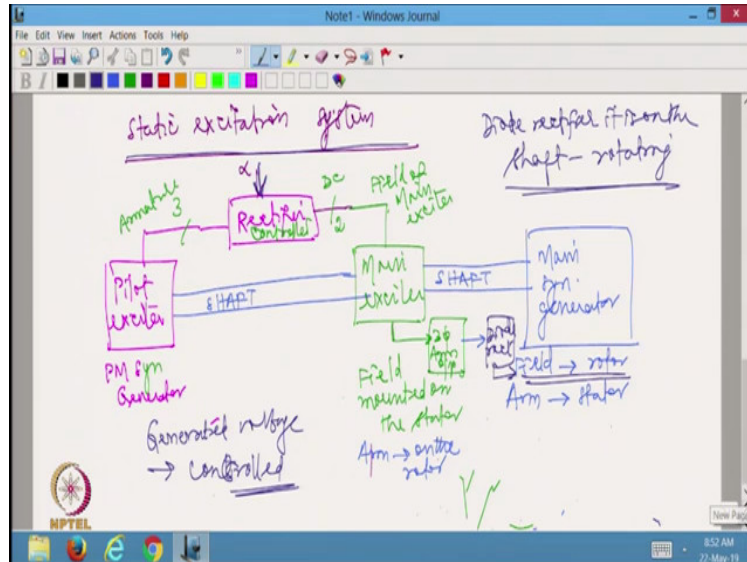 Note1 - Windows Journal
File Edit View Insert Actions Tools Help
B I
Static excitation system
Diode rectifier it is on the
shaft - rotating
Armature
3
α
DC
2
Field of
Main
exciter
Rectifier
Controlled
Pilot
exciter
SHAFT
Main
exciter
SHAFT
Main
syn.
generator
PM Syn
Generator
3φ
Arm
o/p
Diode
rect
Field → rotor
Arm → Stator
Field
mounted on
the stator
Arm → on the
rotor
Generated voltage
→ controlled
NPTEL
New Pag
8:52 AM
22-May-19